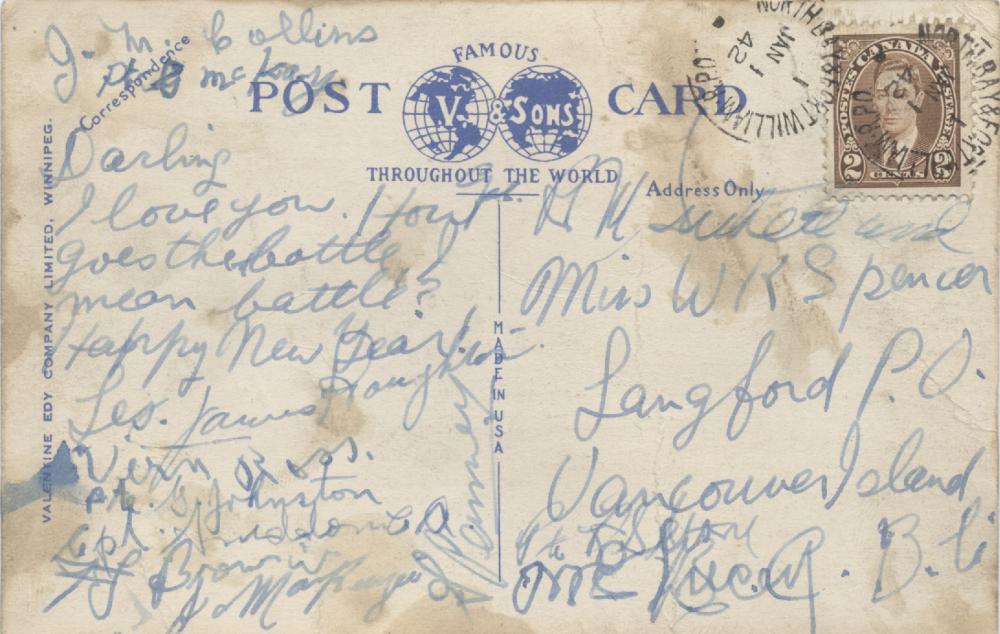 J. M. Collins
Correspondence
FAMOUS
POST CARD
V. & SONS
THROUGHOUT THE WORLD
Address Only
NORTH BAY & FORT WILLIAM R.P.O.
JAN 1
42
POSTES CANADA POSTAGE
2 CENTS 2
VALENTINE EDY COMPANY LIMITED, WINNIPEG.
MADE IN USA
Darling
I love you. How
goes the battle I
mean battle?
Happy New Year!
Les. James Houghton.
Vern Ross.
Pte. G. Johnston
Cpl.
Brown
J. MacKenzie
Miss W K Spencer
Langford P.O.
Vancouver Island
B.C.
Pte